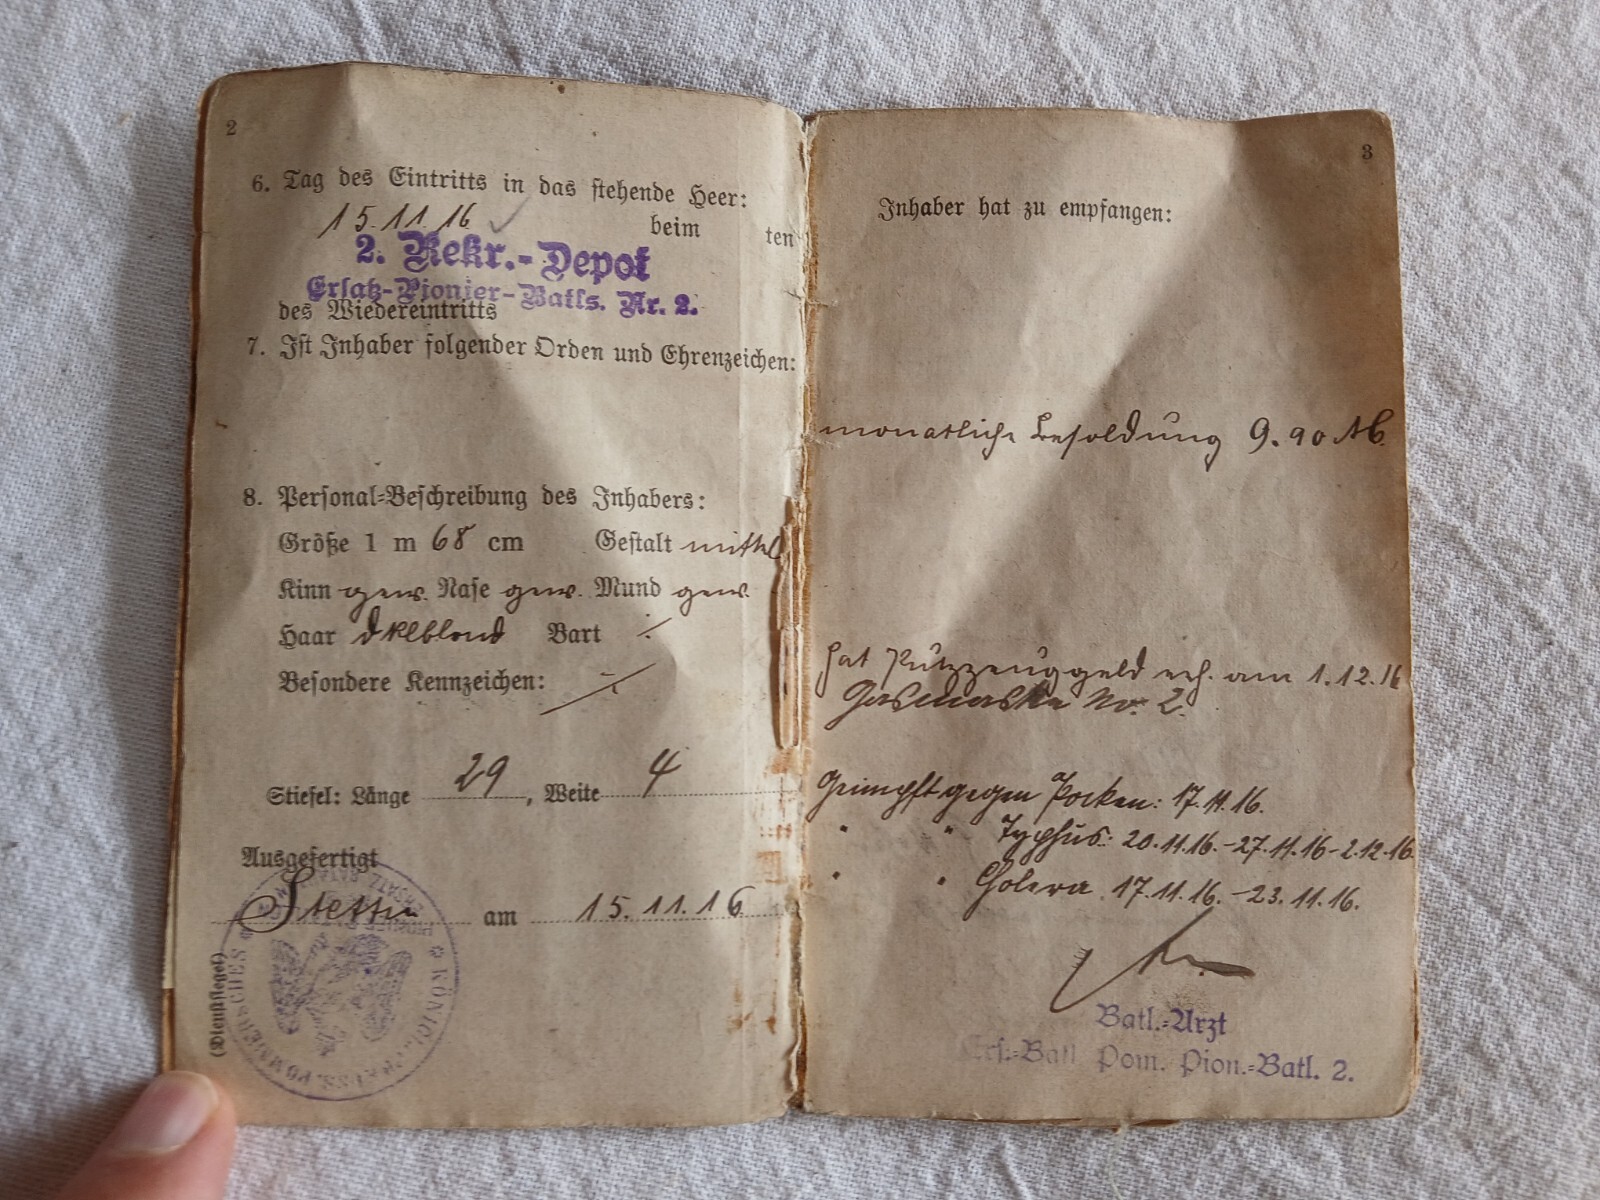 2
6. Tag des Eintritts in das stehende Heer:
15.11.16 beim ten
2. Rekr.-Depot
Ersatz-Pionier-Batls. Nr. 2.
des Wiedereintritts
7. Ist Inhaber folgender Orden und Ehrenzeichen:
8. Personal-Beschreibung des Inhabers:
Größe 1 m 68 cm Gestalt mittel
Kinn gew. Nase gew. Mund gew.
Haar dklblond Bart ./.
Besondere Kennzeichen: ./.
Stiefel: Länge 29, Weite 4
Ausgefertigt
Stettin am 15.11.16
(Dienstsiegel)
KÖNIGL. PREUSS. POMMERSCHES
3
Inhaber hat zu empfangen:
monatliche Besoldung 9.90 M
hat Putzzeuggeld erh. am 1.12.16
Gasmaske No. 2.
Geimpft gegen Pocken: 17.11.16.
" " Typhus: 20.11.16.-27.11.16-2.12.16.
" " Cholera. 17.11.16.-23.11.16.
Batl.-Arzt
Ers.-Batl Pom. Pion.-Batl. 2.